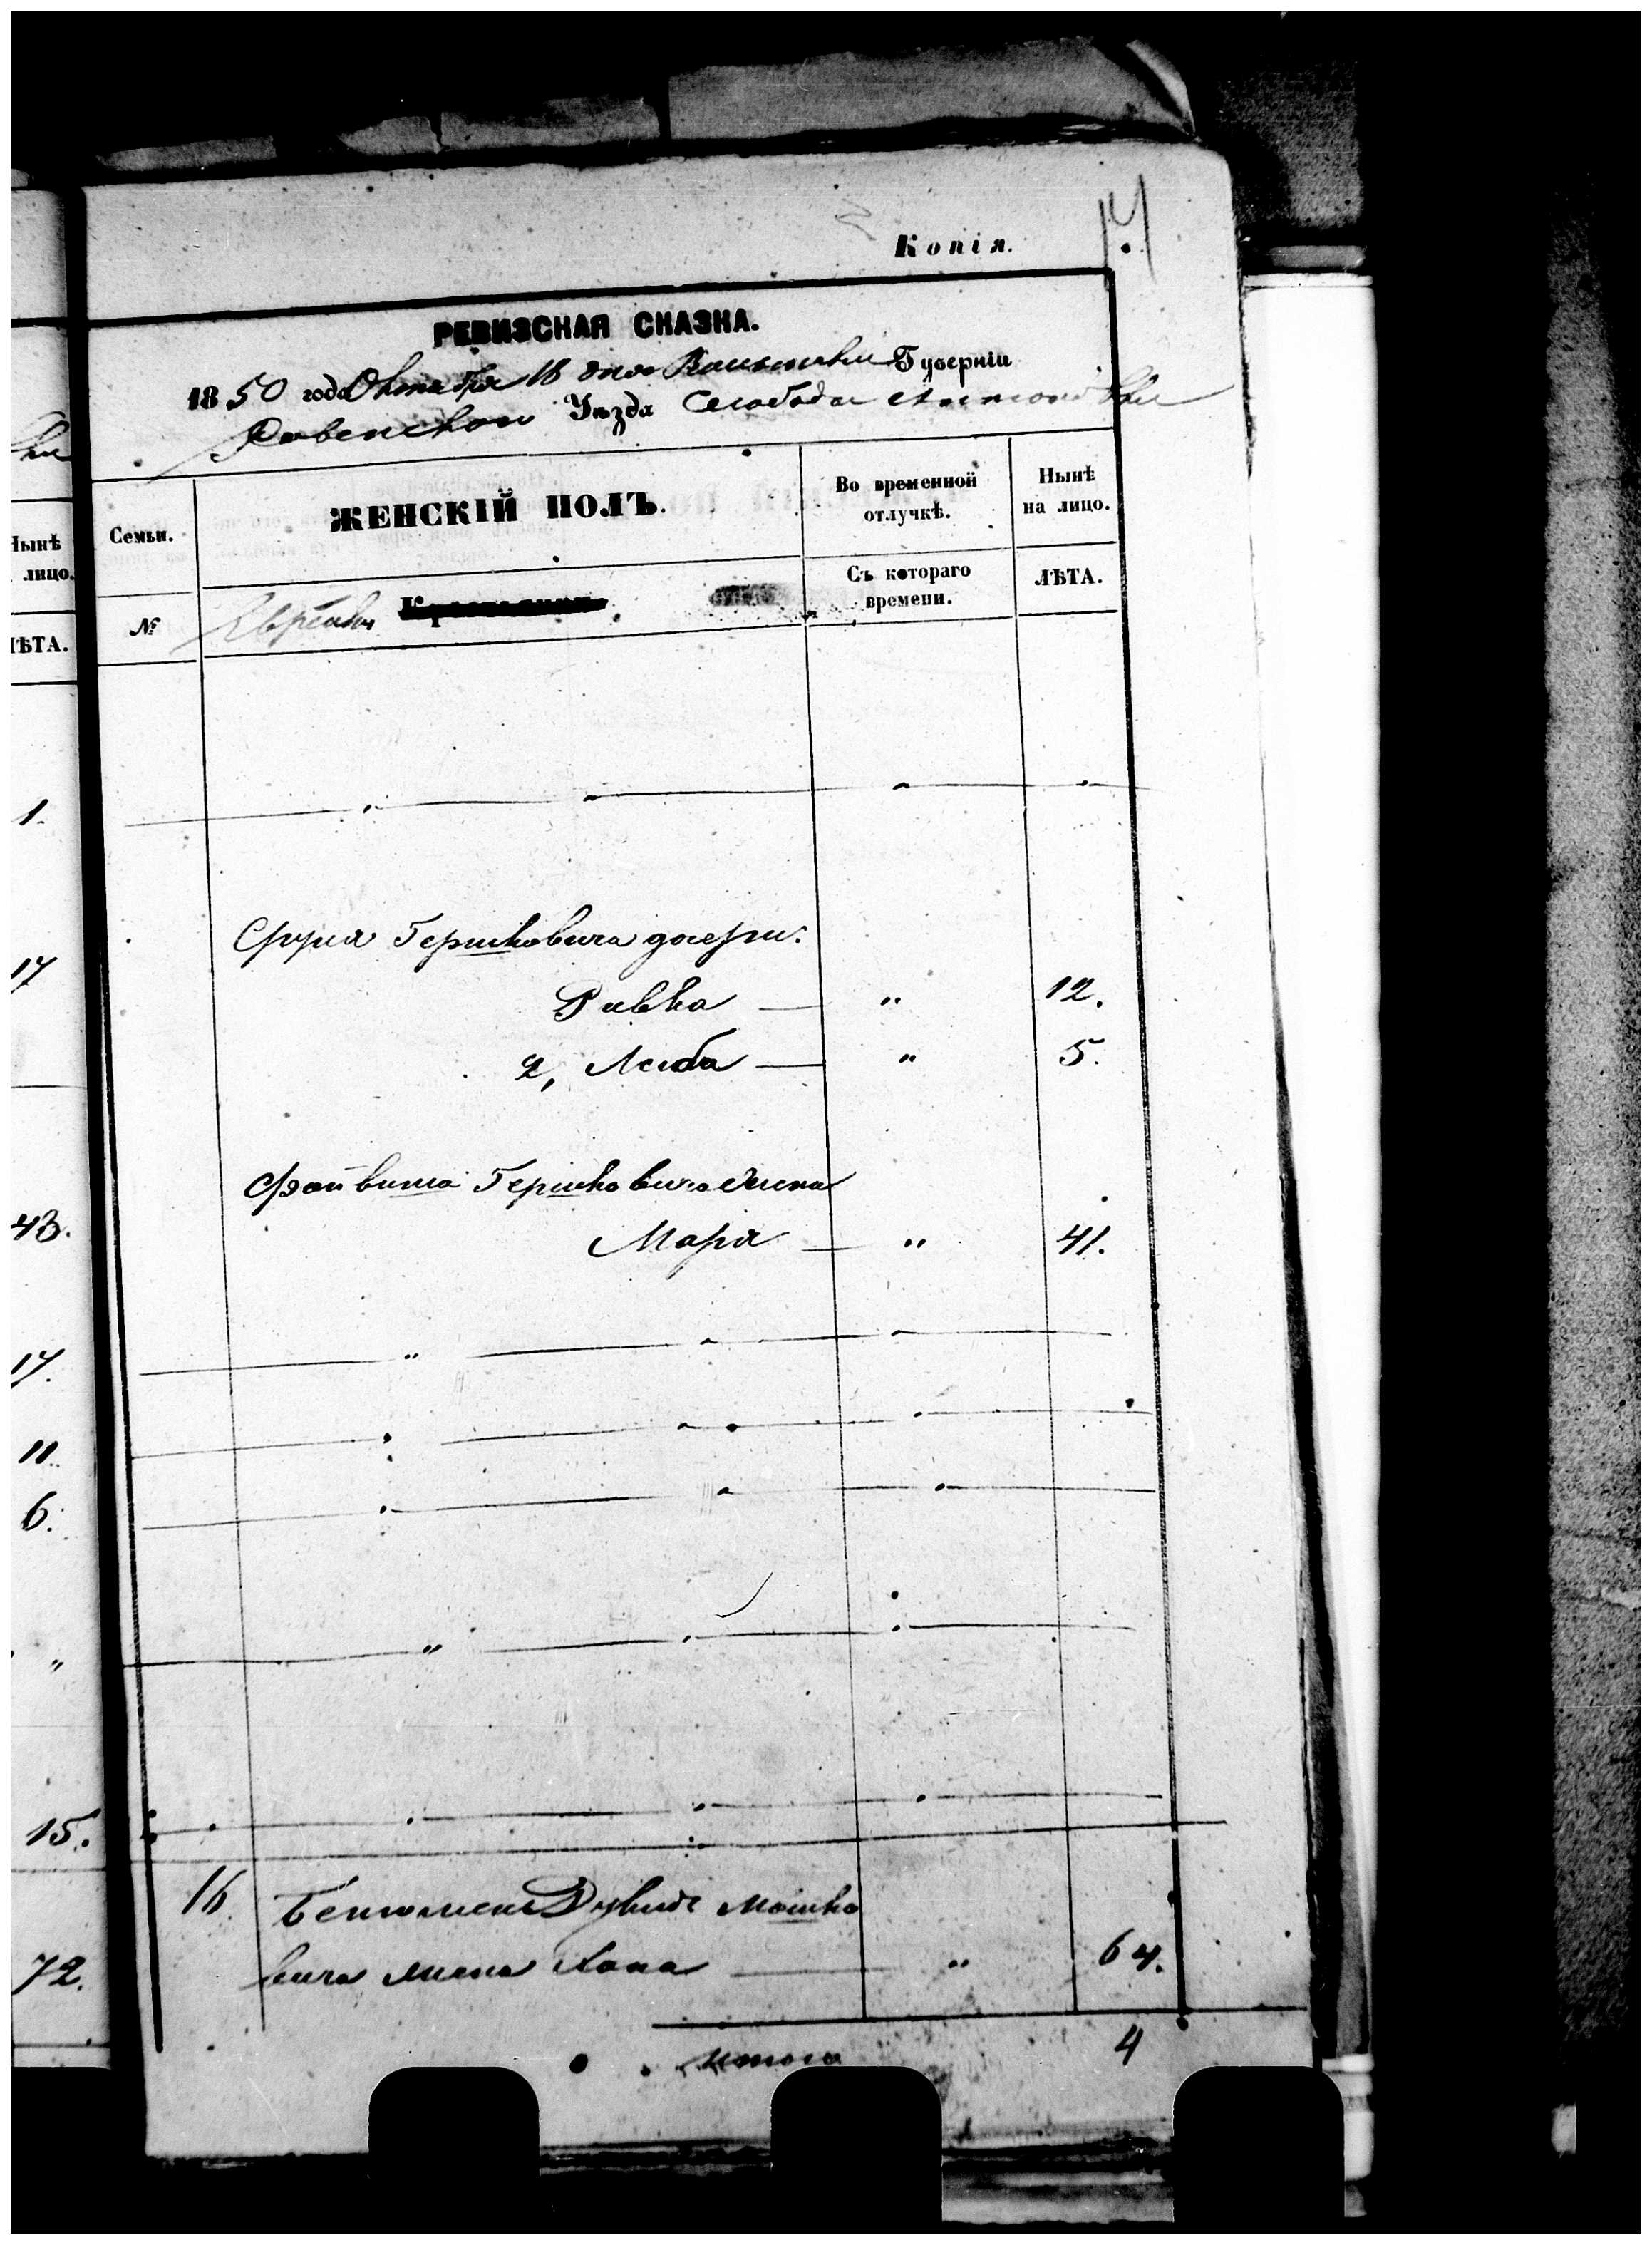 Копія.
РЕВИЗСКАЯ СКАЗКА.
1850 года Октября 18 дня Волынской Губерніи
Ровенскаго Уѣзда Слободы Антоновки
Семьи.
ЖЕНСКІЙ ПОЛЪ.
Во временной отлучкѣ.
Нынѣ на лицо.
№
Еврейки
Съ котораго времени.
ЛѢТА.
Нынѣ
лицо.
ЛѢТА.
1.
Сруля Гершковича дочери:
17
Ривка — " 12.
2, Лейба — " 5.
Файвиша Гершковича жена
43.
Маря — " 41.
17.
11.
6.
"
15.
16 Бенюмена Дувида Мошко
вича жена Хана — " 64.
72.
итого 4